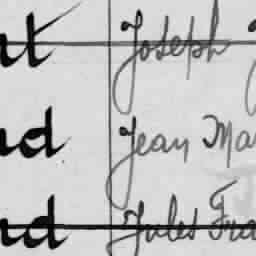 nt Joseph J
nd Jean Mar
nd Jules Fra